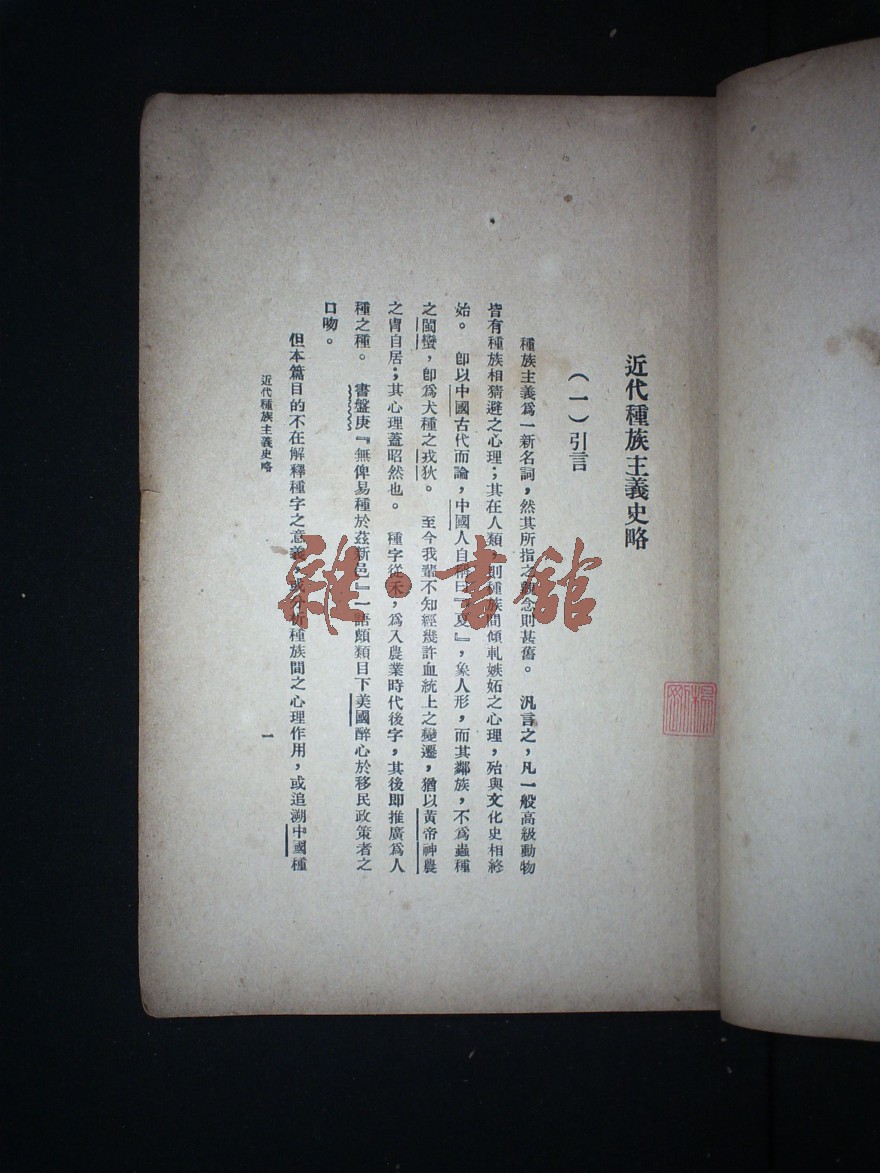 近代種族主義史略
（一）引言
種族主義爲一新名詞，然其所指之觀念則甚舊。 汎言之，凡一般高級動物
皆有種族相猜避之心理；其在人類，則種族間傾軋嫉妬之心理，殆與文化史相終
始。 卽以中國古代而論，中國人自稱曰『夏』，象人形，而其鄰族，不爲蟲種
之閩蠻，卽爲犬種之戎狄。 至今我輩不知經幾許血統上之變遷，猶以黃帝神農
之胄自居；其心理蓋昭然也。 種字從禾，爲入農業時代後字，其後卽推廣爲人
種之種。 書盤庚『無俾易種於茲新邑』一語頗類目下美國醉心於移民政策者之
口吻。
但本篇目的不在解釋種字之意義，或分析種族間之心理作用，或追溯中國種
近代種族主義史略
一
雜·書館